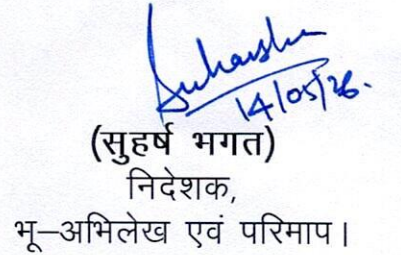 Suharsha
14/05/26.
(सुहर्ष भगत)
निदेशक,
भू–अभिलेख एवं परिमाप।